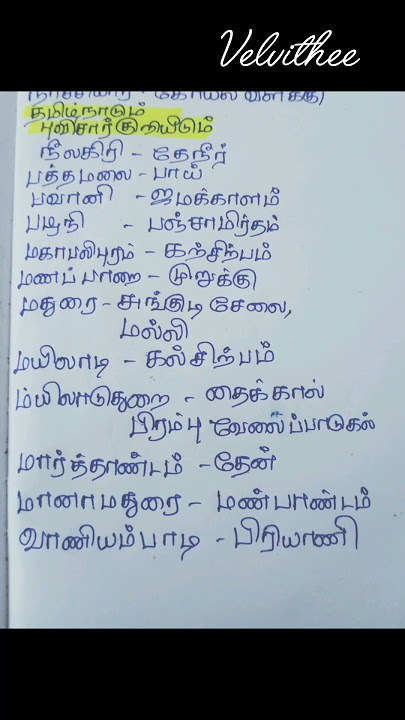 Velvithee
நாச்சியார் - கோயில் விளக்கு
தமிழ்நாடும்
புவிசார்குறியீடும்
நீலகிரி - தேநீர்
பத்தமலை - பாய்
பவானி - ஜமக்காளம்
பழநி - பஞ்சாமிர்தம்
மகாபலிபுரம் - கற்சிற்பம்
மணப்பாறை - முறுக்கு
மதுரை - சுங்குடி சேலை,
மல்லி
மயிலாடி - கல்சிற்பம்
மயிலாடுதுறை - தைக்கால்
பிரம்பு வேலைப்பாடுகல்
மார்த்தாண்டம் - தேன்
மானாமதுரை - மண்பாண்டம்
வாணியம்பாடி - பிரியாணி